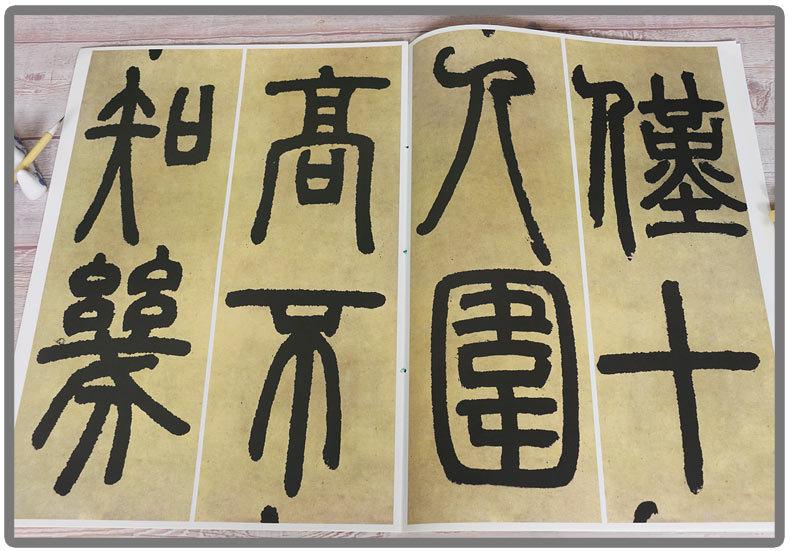 僅十
人圍
高不
知幾